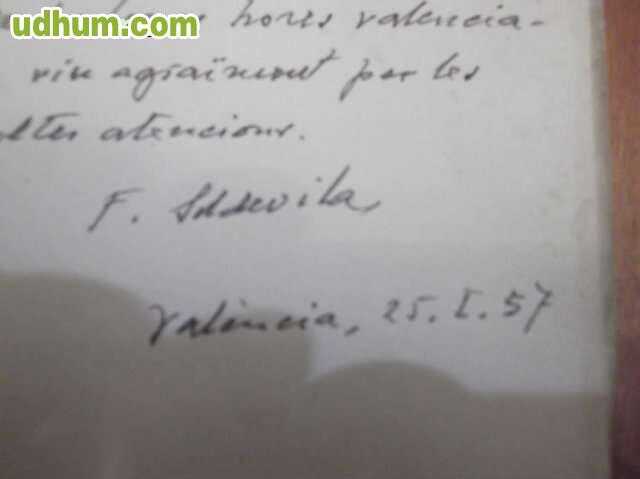 udhum.com
hores valencia-
viu agraïment per les
moltes atencions.
F. Soldevila
València, 25.I.57